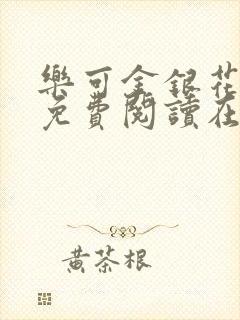 樂可金銀花
免費閱讀在
黃茶根